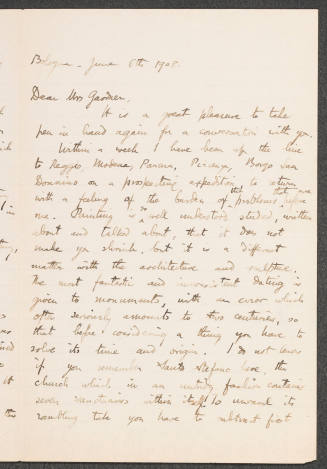 Bologna - June 6th 1908.
Dear Mrs Gardner.
It is a great pleasure to take
pen in hand again for a conversation with you.
Within a week I have been up the line
to Reggio, Modena, Parma, Piacenza, Borgo San
Donnino on a prospecting expedition to return
with a feeling of the burden of the problems that are before
me. Painting is so well understood studied, written
about and talked about, that it does not
make you shriek. but it is a different
matter with the architecture and sculpture.
the most fantastic and inconsistent dating is
given to monuments, with an error which
often seriously amounts to two centuries, so
that before considering a thing you have to
solve its time and origin. I do not know
if you remember Santo Stefano here, the
church which in an untidy fashion contains
seven sanctuaries within itself. to unravel its
rambling tale you have to subtract first